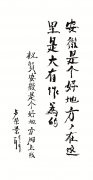 安徽是个好地方，在这
里是大有作为的
祝贺《安徽是个好地方》网上线